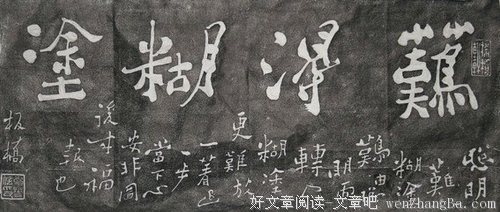 難得糊塗
聰明
難
糊塗
難由聰
明而
轉入
糊塗
更難放
一着退
一步
當下心
安非圖
後來福
報也
板橋
好文章阅读-文章吧 wenZhangBa.Com